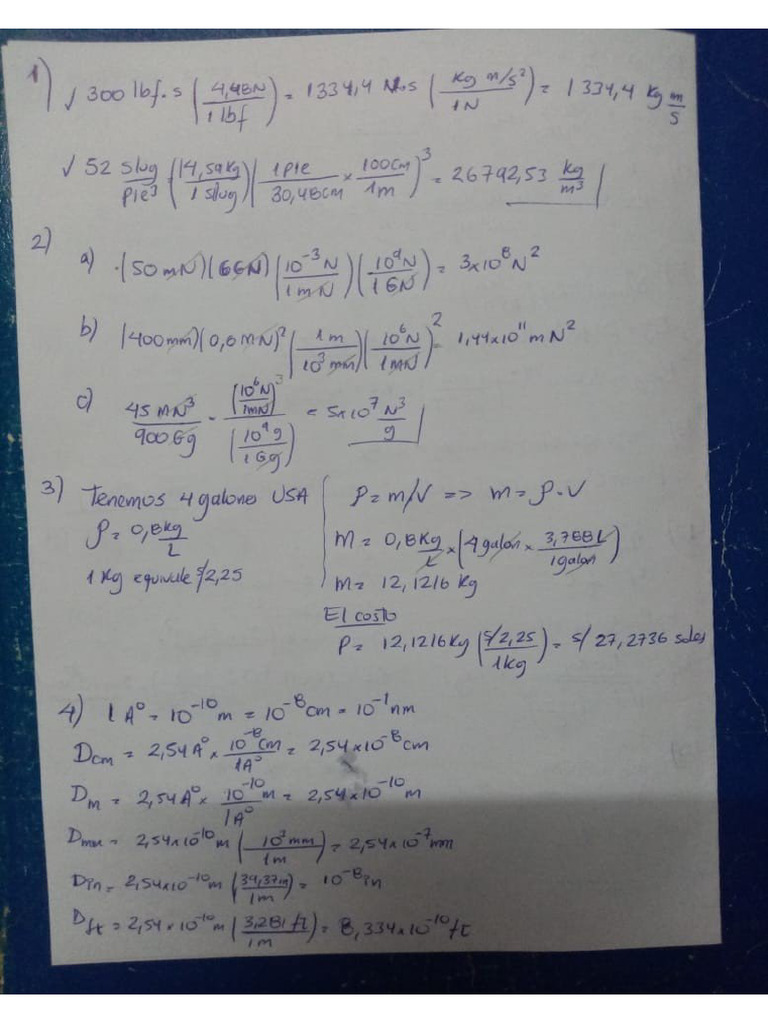 1) √ 300 lbf·s (4,48N / 1 lbf) = 1334,4 N·s (kg m/s² / 1N) = 1334,4 kg m/s
√ 52 slug/pie³ (14,59kg / 1 slug) (1 pie / 30,48cm × 100cm / 1m)³ = 26792,53 kg/m³
2)
a) (50mN)(6GN) (10⁻³N / 1mN) (10⁹N / 1GN) = 3×10⁸N²
b) (400mm)(0,6MN)² (1m / 10³mm) (10⁶N / 1MN)² = 1,44×10¹¹ mN²
c) 45 MN³ / 900 Gg · (10⁶N / 1MN)³ / (10⁹g / 1Gg) = 5×10⁷ N³/g
3) Tenemos 4 galones USA
ρ = 0,8 kg/L
1 kg equivale s/2,25
ρ = m/V => m = ρ·V
m = 0,8 kg/L × (4 galon × 3,788L / 1 galon)
m = 12,1216 kg
El costo
P = 12,1216 kg (s/2,25 / 1kg) = s/ 27,2736 soles
4) 1 A° = 10⁻¹⁰m = 10⁻⁸cm = 10⁻¹nm
Dcm = 2,54A° × 10⁻⁸cm / 1A° = 2,54×10⁻⁸cm
Dm = 2,54A° × 10⁻¹⁰m / 1A° = 2,54×10⁻¹⁰m
Dmm = 2,54×10⁻¹⁰m (10³mm / 1m) = 2,54×10⁻⁷mm
Din = 2,54×10⁻¹⁰m (39,37in / 1m) = 10⁻⁸in
Dft = 2,54×10⁻¹⁰m (3,281ft / 1m) = 8,334×10⁻¹⁰ft